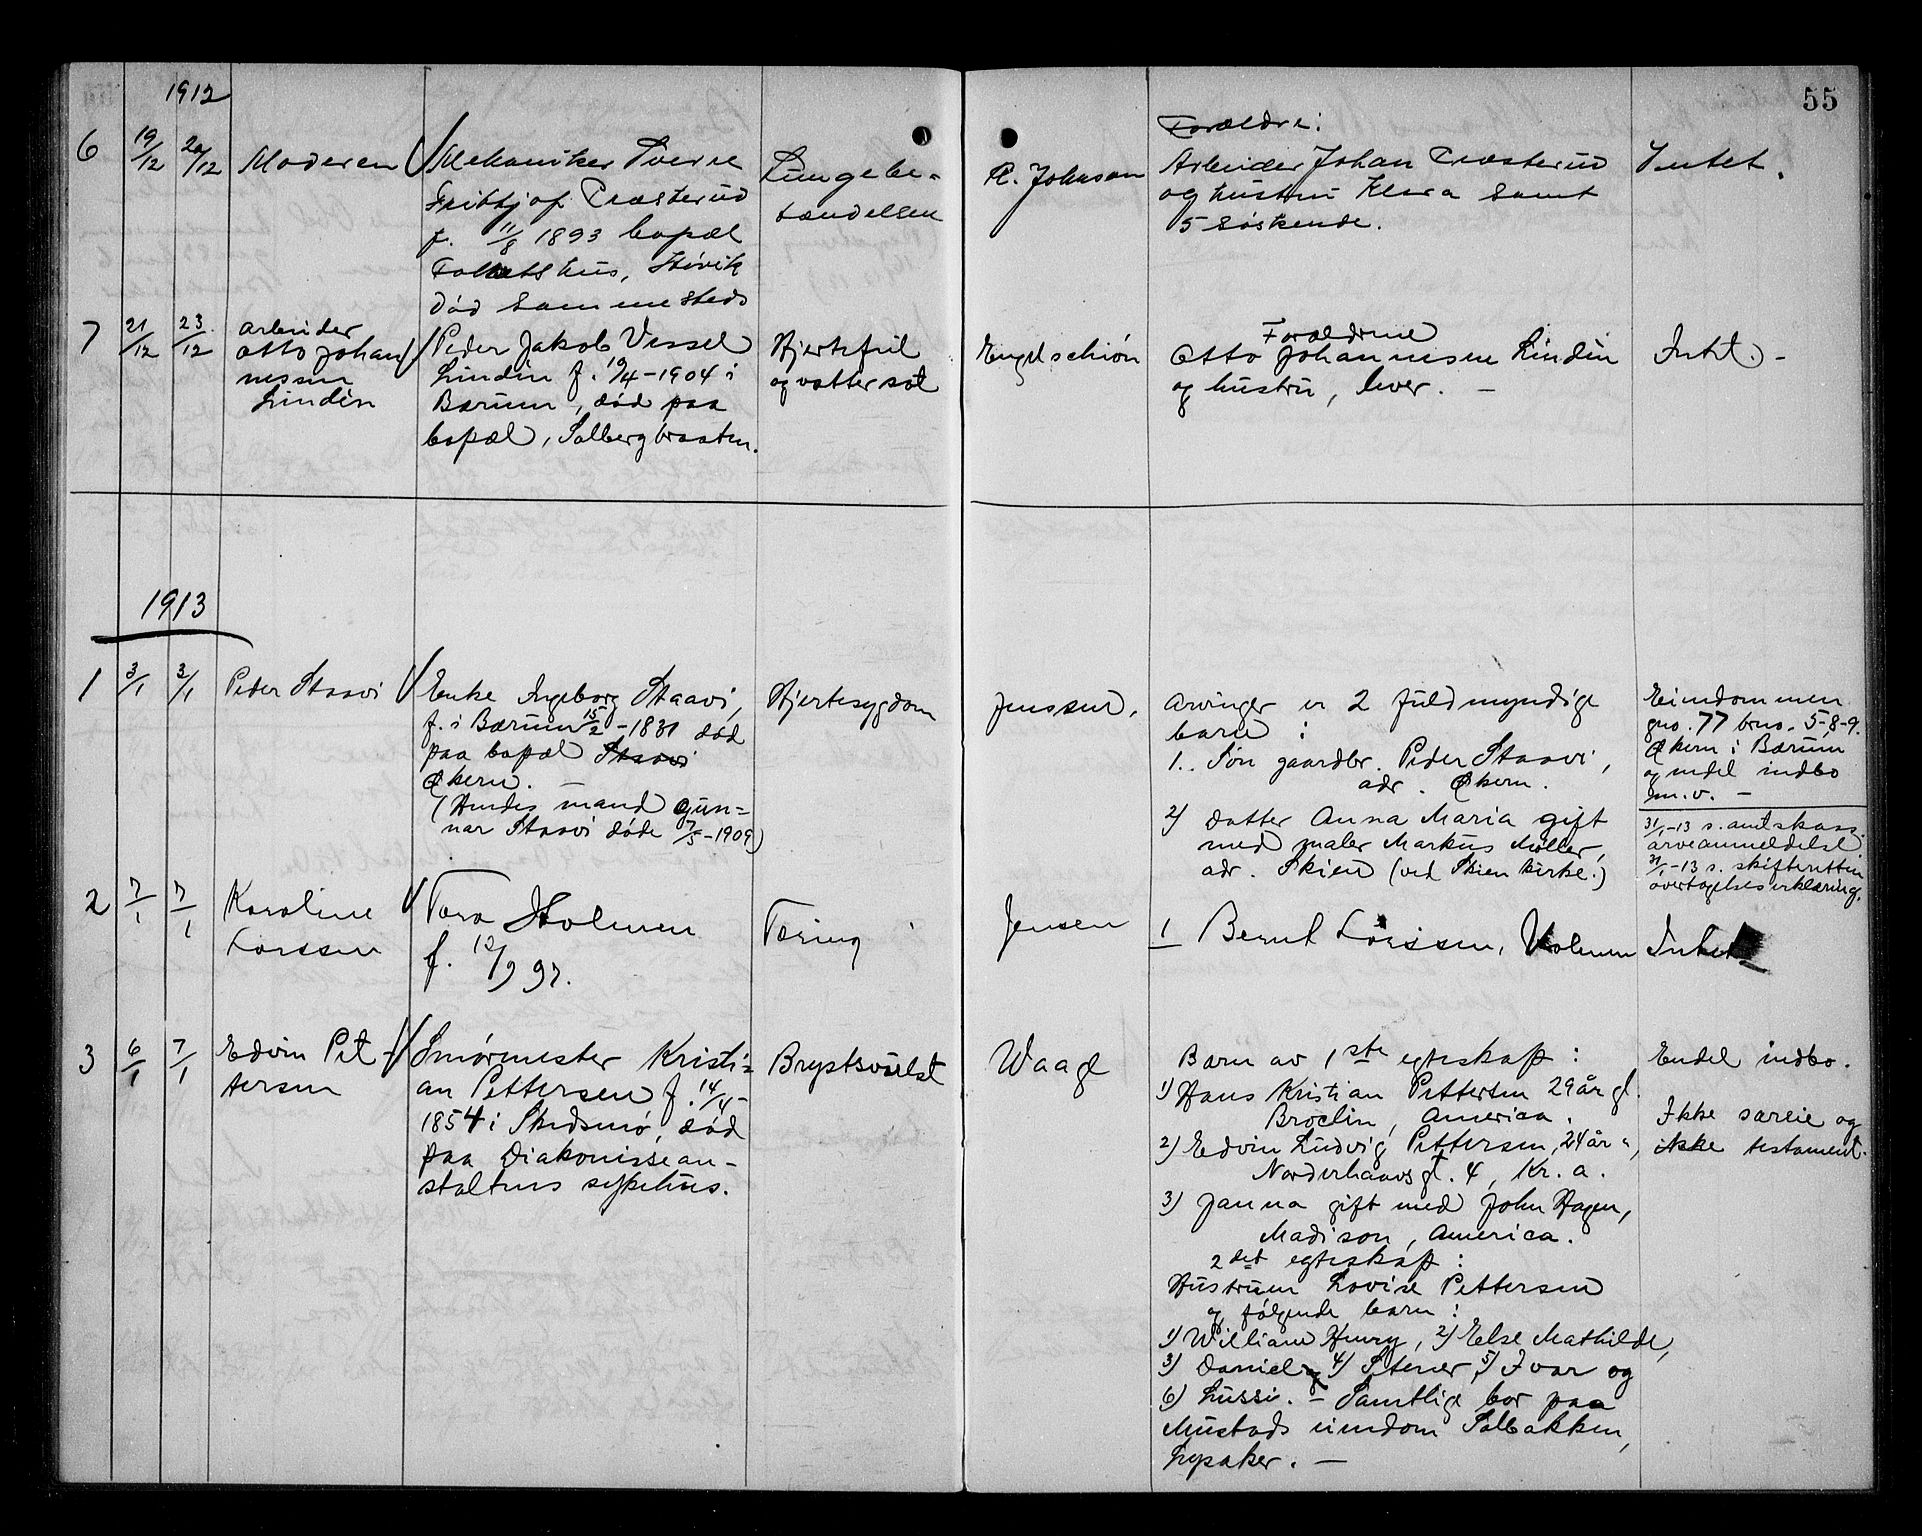 1912
55
6
19/12
20/12
Moderen
Mekaniker Sverre
Fritjof Træsterud
f. 11/8 1893 bopæl
Folkets hus, Høvik
Død sammesteds
Lungebe-
tændelsen
R. Johnson
Forældre:
Arbeider Johan Træsterud
og hustru Klara samt
5 søskende.
Intet.
7
21/12
23/12
arbeider
Otto Johan
nesen
Lindén
Peder Jakob Vessel
Lindén f. 19/4-1904 i
Bærum, død paa
bopæl, Solbergbraaten.
Hjertefeil
og vattersot
Engelschiøn
Forældrene
Otto Johannesen Lindén
og hustru, lever. -
Intet. -
1913
1
3/1
3/1
Peder Staavi
Enke Ingeborg Staavi,
f. i Bærum 15/2-1831 død
paa bopæl Staavi
Økern. -
(Hendes mand Gun-
nar Staavi døde 7/5-1909)
Hjertesygdom
Jenssen.
Arvinger er 2 fuldmyndige
barn:
1. Søn gaardbr. Peder Staavi,
adr. Økern.
2) Datter Anna Maria gift
med maler Markus Møller,
adr. Skien (ved Skien kirke.)
Eiendommen
gno. 77 bno. 5-8-9.
Økern i Bærum
og endel indbo
m.v. -
31/1-13 s. amtskass.
arveanmeldelse
31/1-13 s. skifteretten
overtagelseserklæring.
2
7/1
7/1
Karoline
Larssen
Tora Holmen
f. 12/9 97.
Tæring
Jensen
1 Bernt Larssen, Holmen
Intet
3
6/1
7/1
Edvin Pet-
tersen
Smørmester Kristi-
an Pettersen f. 14/4-
1854 i Skedsmo, død
paa Diakonissean-
staltens sykehus.
Brystsvulst
Waage
Barn av 1ste egteskap:
1) Hans Kristian Pettersen 29 år gl.
Broclin, America.
2) Edvin Ludvig Pettersen, 24 år ",
Norderhaavsgt. 4, Kr.a.
3) Janna gift med John Hagen,
Madison, America.
2det egteskap:
Hustruen Lovise Pettersen
og følgende barn:
1) William Henry, 2) Else Mathilde,
3) Daniel og 4) Stener, 5) Ivar og
6) Lussi. - Samtlige bor paa
Mustads eiendom Solbakken,
Lysaker. -
Endel indbo.
Ikke særeie og
ikke testament.